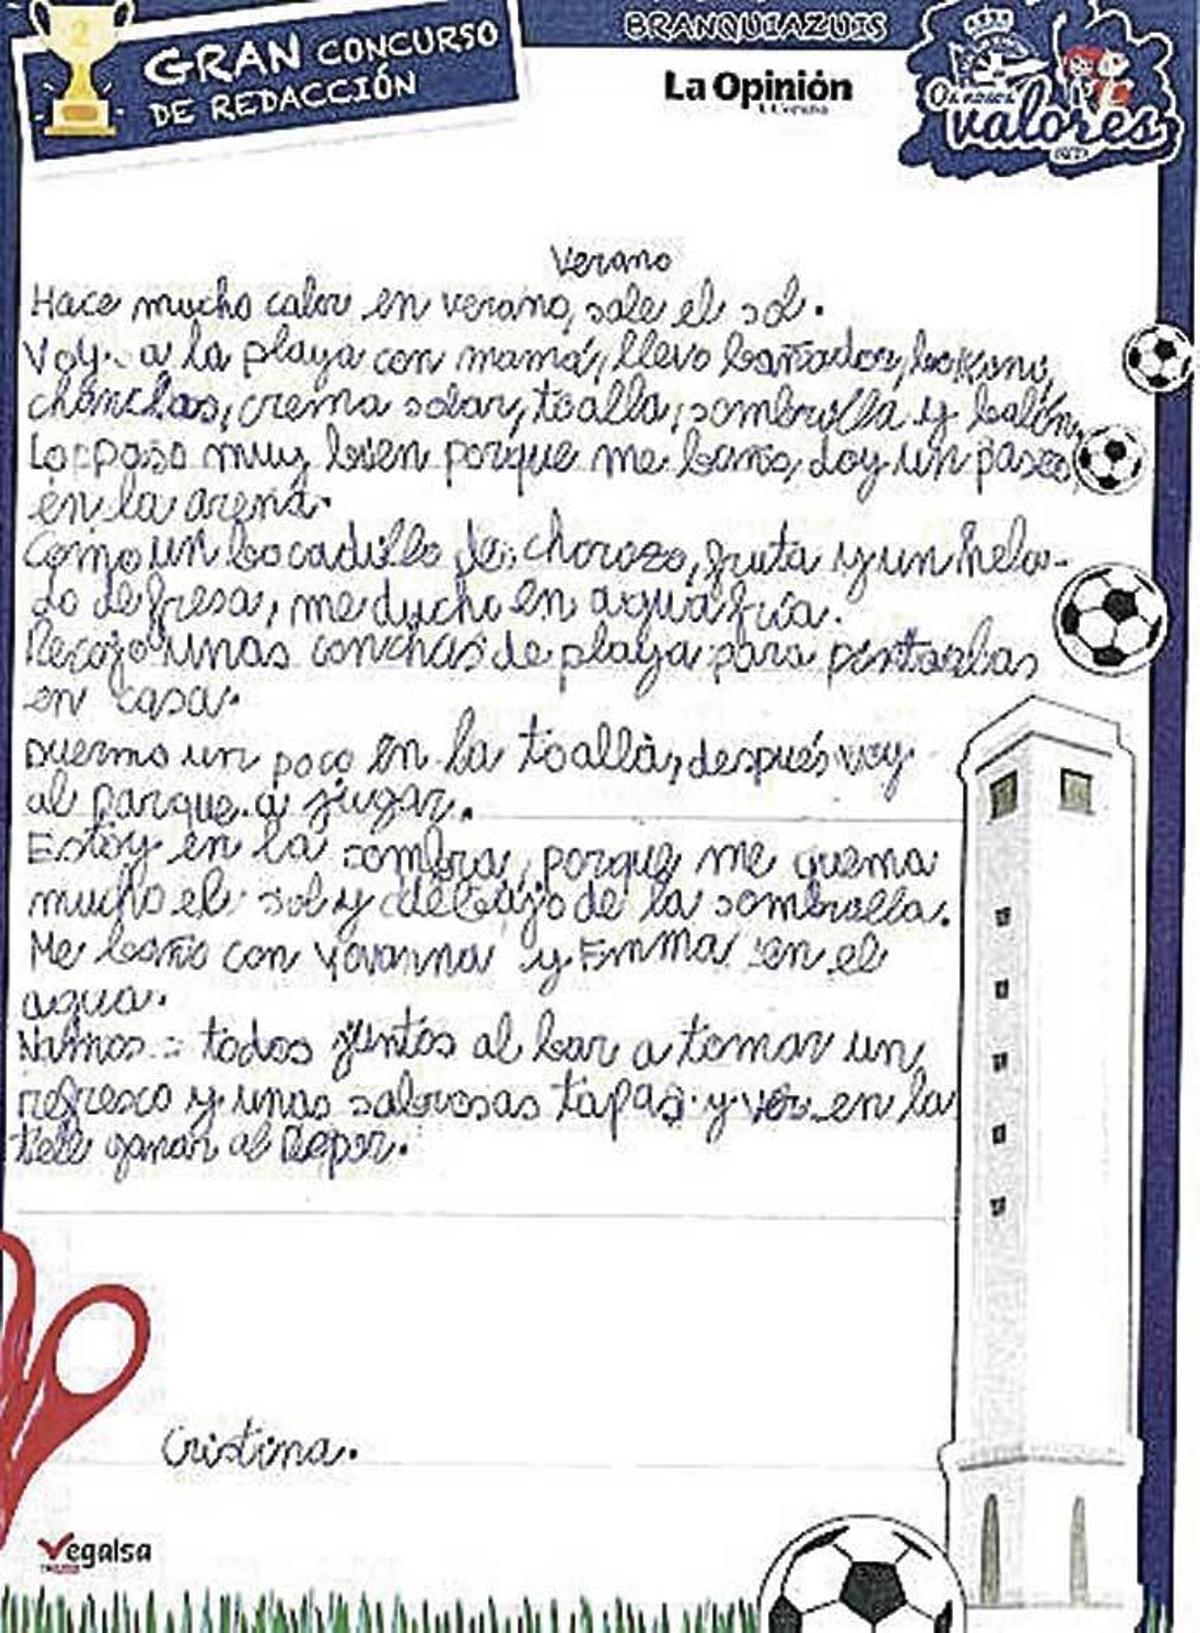 2
GRAN CONCURSO
DE REDACCIÓN
BRANQUIAZUIS
La Opinión
A Coruña
valores
Verano
Hace mucho calor en verano, sale el sol.
Voy a la playa con mamá, llevo bañador, bokono,
chanchas, crema solar, toalla, sombrilla y balón.
Lo paso muy bien porque me baño, doy un paseo,
en la arena.
Como un bocadillo de chorozo, fruta y un hela-
do de fresa, me ducho en agua fría.
Recojo unas conchas de playa para pintarlas
en casa.
Duermo un poco en la toalla, después voy
al parque a jugar.
Estoy en la sombra, porque me quema
mucho el sol y debajo de la sombrilla.
Me baño con Yovanna y Emma en el
agua.
Namos todos juntos al bar a tomar un
refresco y unas sabrosas tapas y ver en la
tele ganar al Depor.
Cristina.
Vegalsa